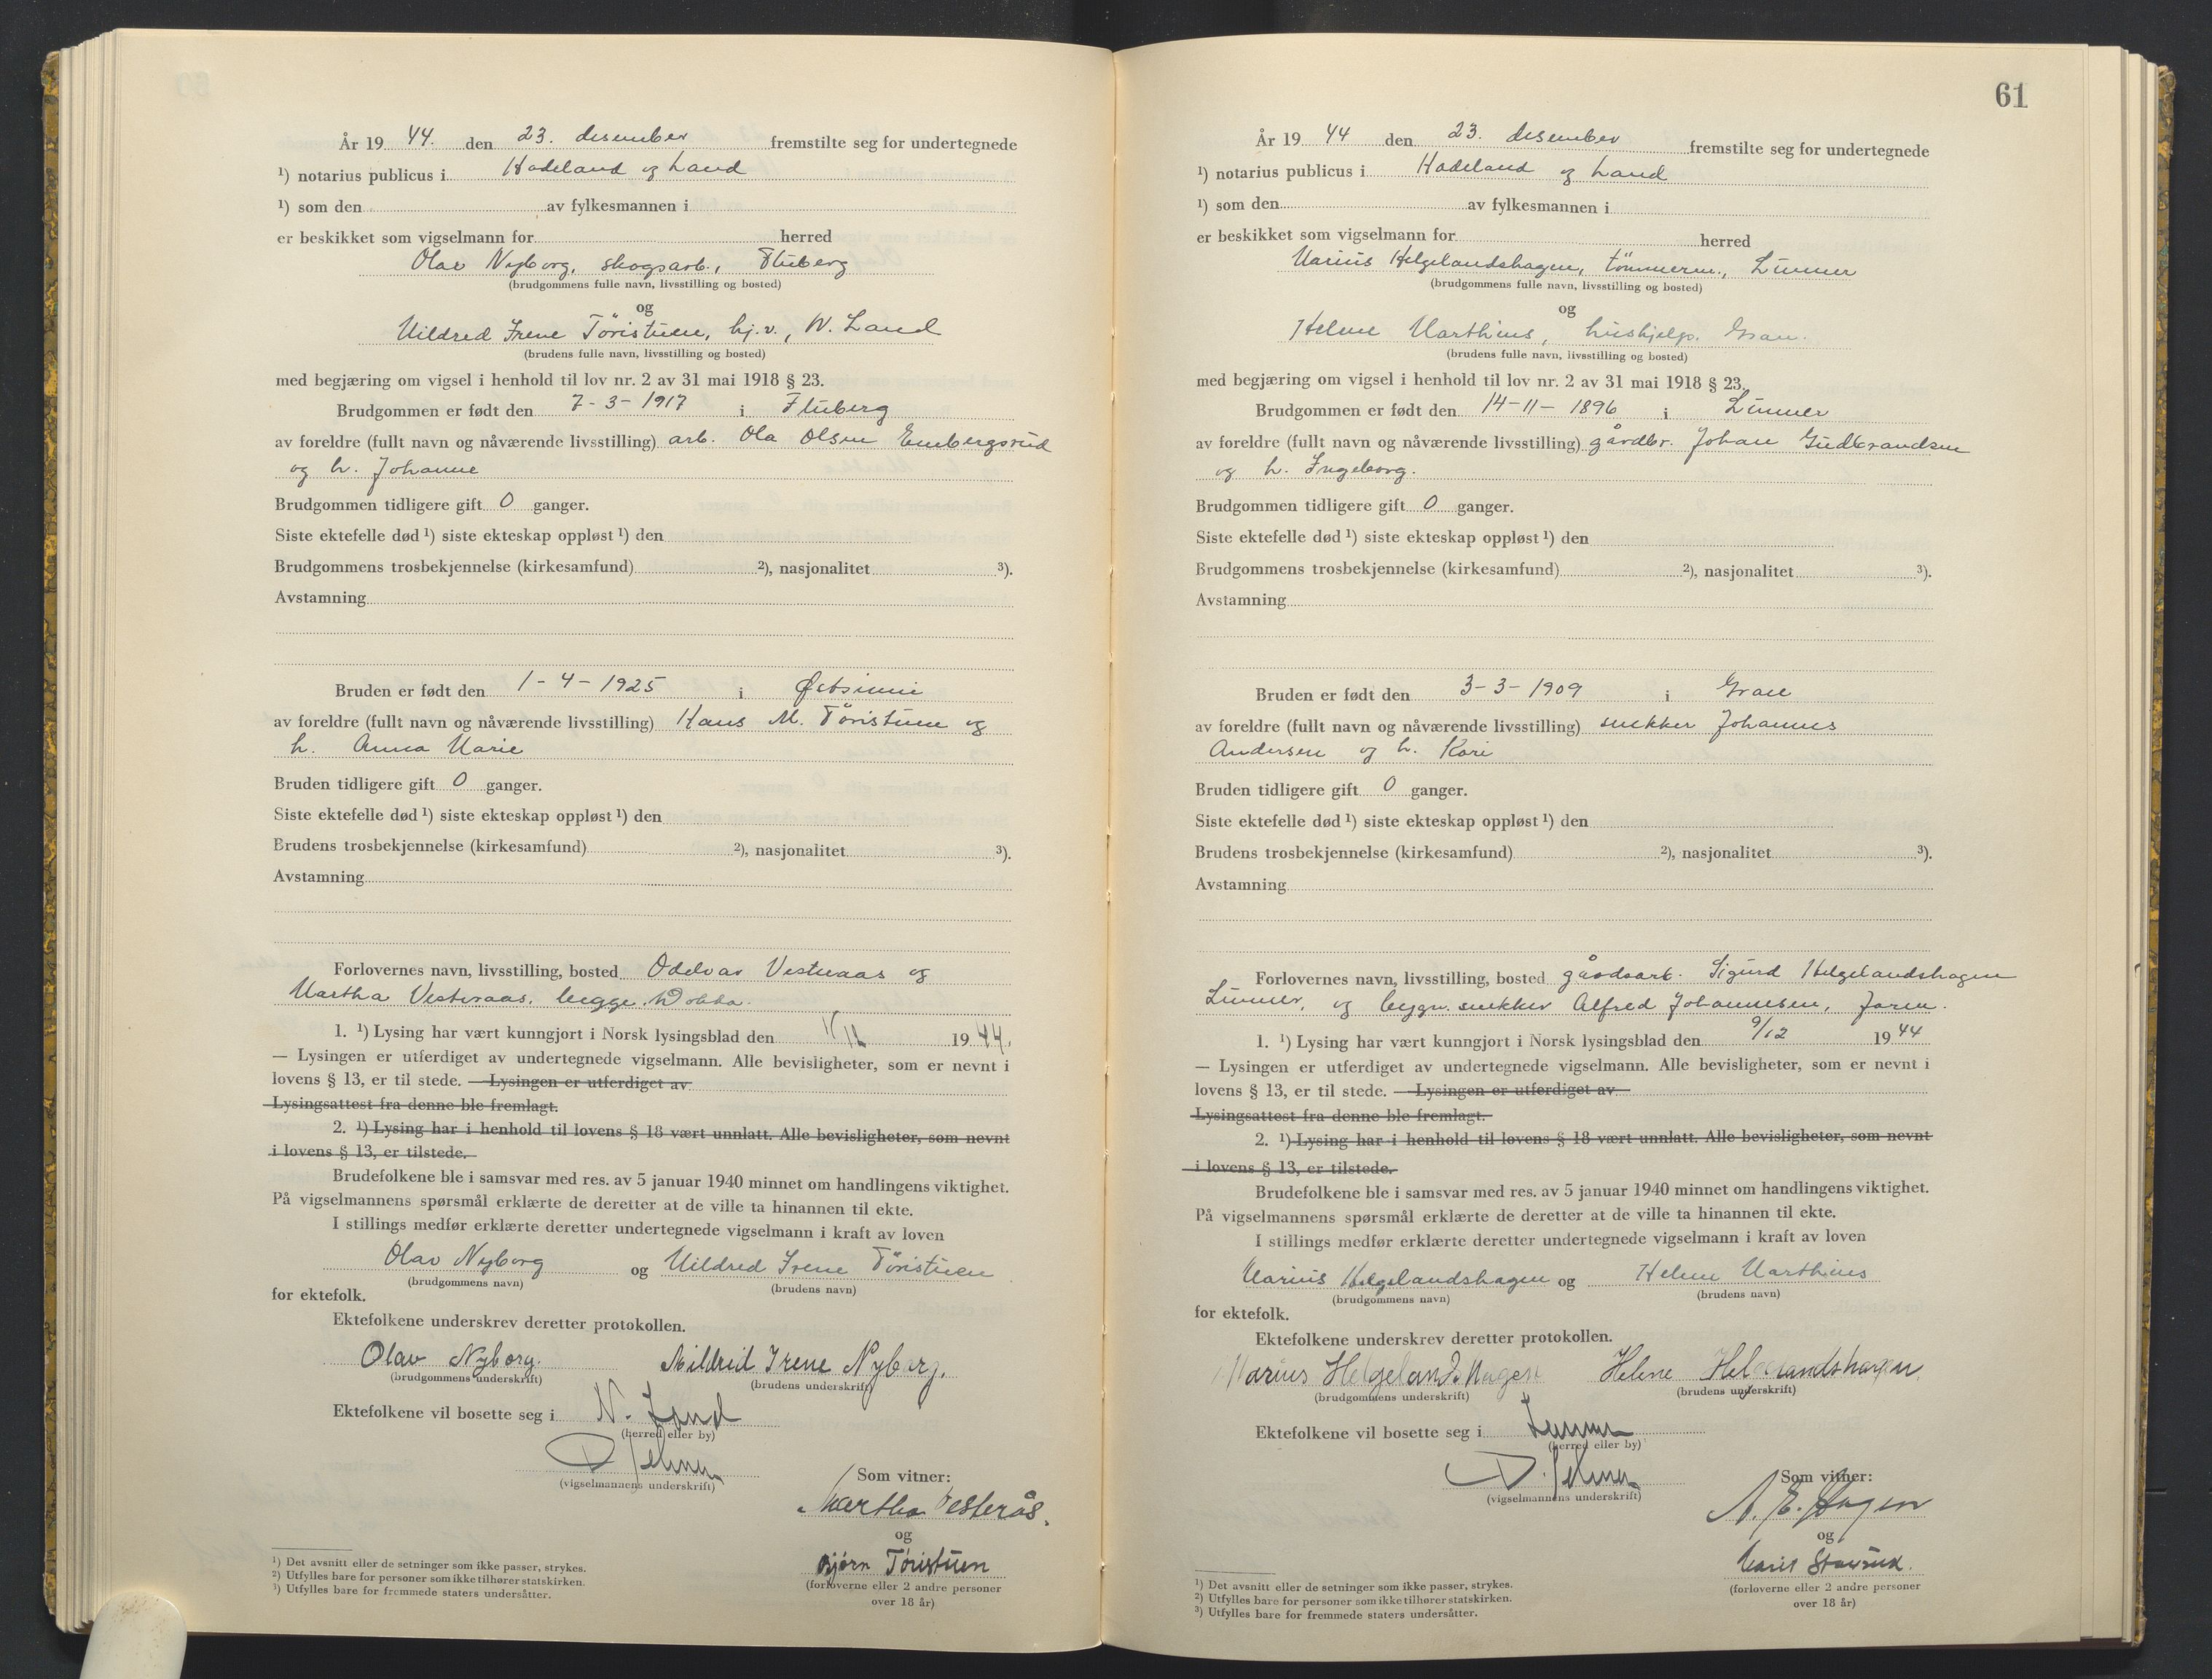 År 19 44. den 23. desember fremstilte seg for undertegnede
¹) notarius publicus i Hadeland og Land
¹) som den av fylkesmannen i
er beskikket som vigselmann for herred
Olav Nyborg, skogsarb., Fluberg
(brudgommens fulle navn, livsstilling og bosted)
og
Mildred Irene Töristuen, hj.v., N. Land
(brudens fulle navn, livsstilling og bosted)
med begjæring om vigsel i henhold til lov nr. 2 av 31 mai 1918 § 23.
Brudgommen er født den 7-3-1917 i Fluberg
av foreldre (fullt navn og nåværende livsstilling) arb. Ola Olsen Embergsrud
og h. Johanne
Brudgommen tidligere gift 0 ganger.
Siste ektefelle død ¹) siste ekteskap oppløst ¹) den
Brudgommens trosbekjennelse (kirkesamfund) ²), nasjonalitet ³).
Avstamning
Bruden er født den 1-4-1925 i
av foreldre (fullt navn og nåværende livsstilling) Hans M. Töristuen og
h. Anna Marie
Bruden tidligere gift 0 ganger.
Siste ektefelle død ¹) siste ekteskap oppløst ¹) den
Brudens trosbekjennelse (kirkesamfund) ²), nasjonalitet ³).
Avstamning
Forlovernes navn, livsstilling, bosted Oddvar Vesteraas og
Martha Vesteraas, begge Dokka.
1. ¹) Lysing har vært kunngjort i Norsk lysingsblad den 19 44.
— Lysingen er utferdiget av undertegnede vigselmann. Alle bevisligheter, som er nevnt i
lovens § 13, er til stede. — Lysingen er utferdiget av
Lysingsattest fra denne ble fremlagt.
2. ¹) Lysing har i henhold til lovens § 18 vært unnlatt. Alle bevisligheter, som nevnt
i lovens § 13, er tilstede.
Brudefolkene ble i samsvar med res. av 5 januar 1940 minnet om handlingens viktighet.
På vigselmannens spørsmål erklærte de deretter at de ville ta hinannen til ekte.
I stillings medfør erklærte deretter undertegnede vigselmann i kraft av loven
Olav Nyborg og Mildred Irene Töristuen
(brudgommens navn) (brudens navn)
for ektefolk.
Ektefolkene underskrev deretter protokollen.
Olav Nyborg. Mildred Irene Nyborg.
(brudgommens underskrift) (brudens underskrift)
Ektefolkene vil bosette seg i N. Land
(herred eller by)
(vigselmannens underskrift)
Som vitner:
Martha Vesterås.
og
Bjørn Töristuen
(forloverne eller 2 andre personer
over 18 år)
¹) Det avsnitt eller de setninger som ikke passer, strykes.
²) Utfylles bare for personer som ikke tilhører statskirken.
³) Utfylles bare for fremmede staters undersåtter.
61
År 19 44 den 23. desember fremstilte seg for undertegnede
¹) notarius publicus i Hadeland og Land
¹) som den av fylkesmannen i
er beskikket som vigselmann for herred
Marius Helgelandshagen, tömmerm., Lunner
(brudgommens fulle navn, livsstilling og bosted)
og
Helene Marthins, hushjelp. Gran.
(brudens fulle navn, livsstilling og bosted)
med begjæring om vigsel i henhold til lov nr. 2 av 31 mai 1918 § 23.
Brudgommen er født den 14-11-1896 i Lunner
av foreldre (fullt navn og nåværende livsstilling) gårdbr. Johan Gudbrandsen
og h. Ingeborg.
Brudgommen tidligere gift 0 ganger.
Siste ektefelle død ¹) siste ekteskap oppløst ¹) den
Brudgommens trosbekjennelse (kirkesamfund) ²), nasjonalitet ³).
Avstamning
Bruden er født den 3-3-1909 i Gran
av foreldre (fullt navn og nåværende livsstilling) snekker Johannes
Andersen og h. Kari
Bruden tidligere gift 0 ganger.
Siste ektefelle død ¹) siste ekteskap oppløst ¹) den
Brudens trosbekjennelse (kirkesamfund) ²), nasjonalitet ³).
Avstamning
Forlovernes navn, livsstilling, bosted gårdsarb. Sigurd Helgelandshagen
Lunner, og bygn.snekker Alfred Johannesen, Jaren.
1. ¹) Lysing har vært kunngjort i Norsk lysingsblad den 9/12 19 44
— Lysingen er utferdiget av undertegnede vigselmann. Alle bevisligheter, som er nevnt i
lovens § 13, er til stede. — Lysingen er utferdiget av
Lysingsattest fra denne ble fremlagt.
2. ¹) Lysing har i henhold til lovens § 18 vært unnlatt. Alle bevisligheter, som nevnt
i lovens § 13, er tilstede.
Brudefolkene ble i samsvar med res. av 5 januar 1940 minnet om handlingens viktighet.
På vigselmannens spørsmål erklærte de deretter at de ville ta hinannen til ekte.
I stillings medfør erklærte deretter undertegnede vigselmann i kraft av loven
Marius Helgelandshagen og Helene Marthins
(brudgommens navn) (brudens navn)
for ektefolk.
Ektefolkene underskrev deretter protokollen.
Marius Helgelandshagen Helene Helgelandshagen.
(brudgommens underskrift) (brudens underskrift)
Ektefolkene vil bosette seg i Lunner
(herred eller by)
(vigselmannens underskrift)
Som vitner:
A. E. Hagen
og
(forloverne eller 2 andre personer
over 18 år)
¹) Det avsnitt eller de setninger som ikke passer, strykes.
²) Utfylles bare for personer som ikke tilhører statskirken.
³) Utfylles bare for fremmede staters undersåtter.